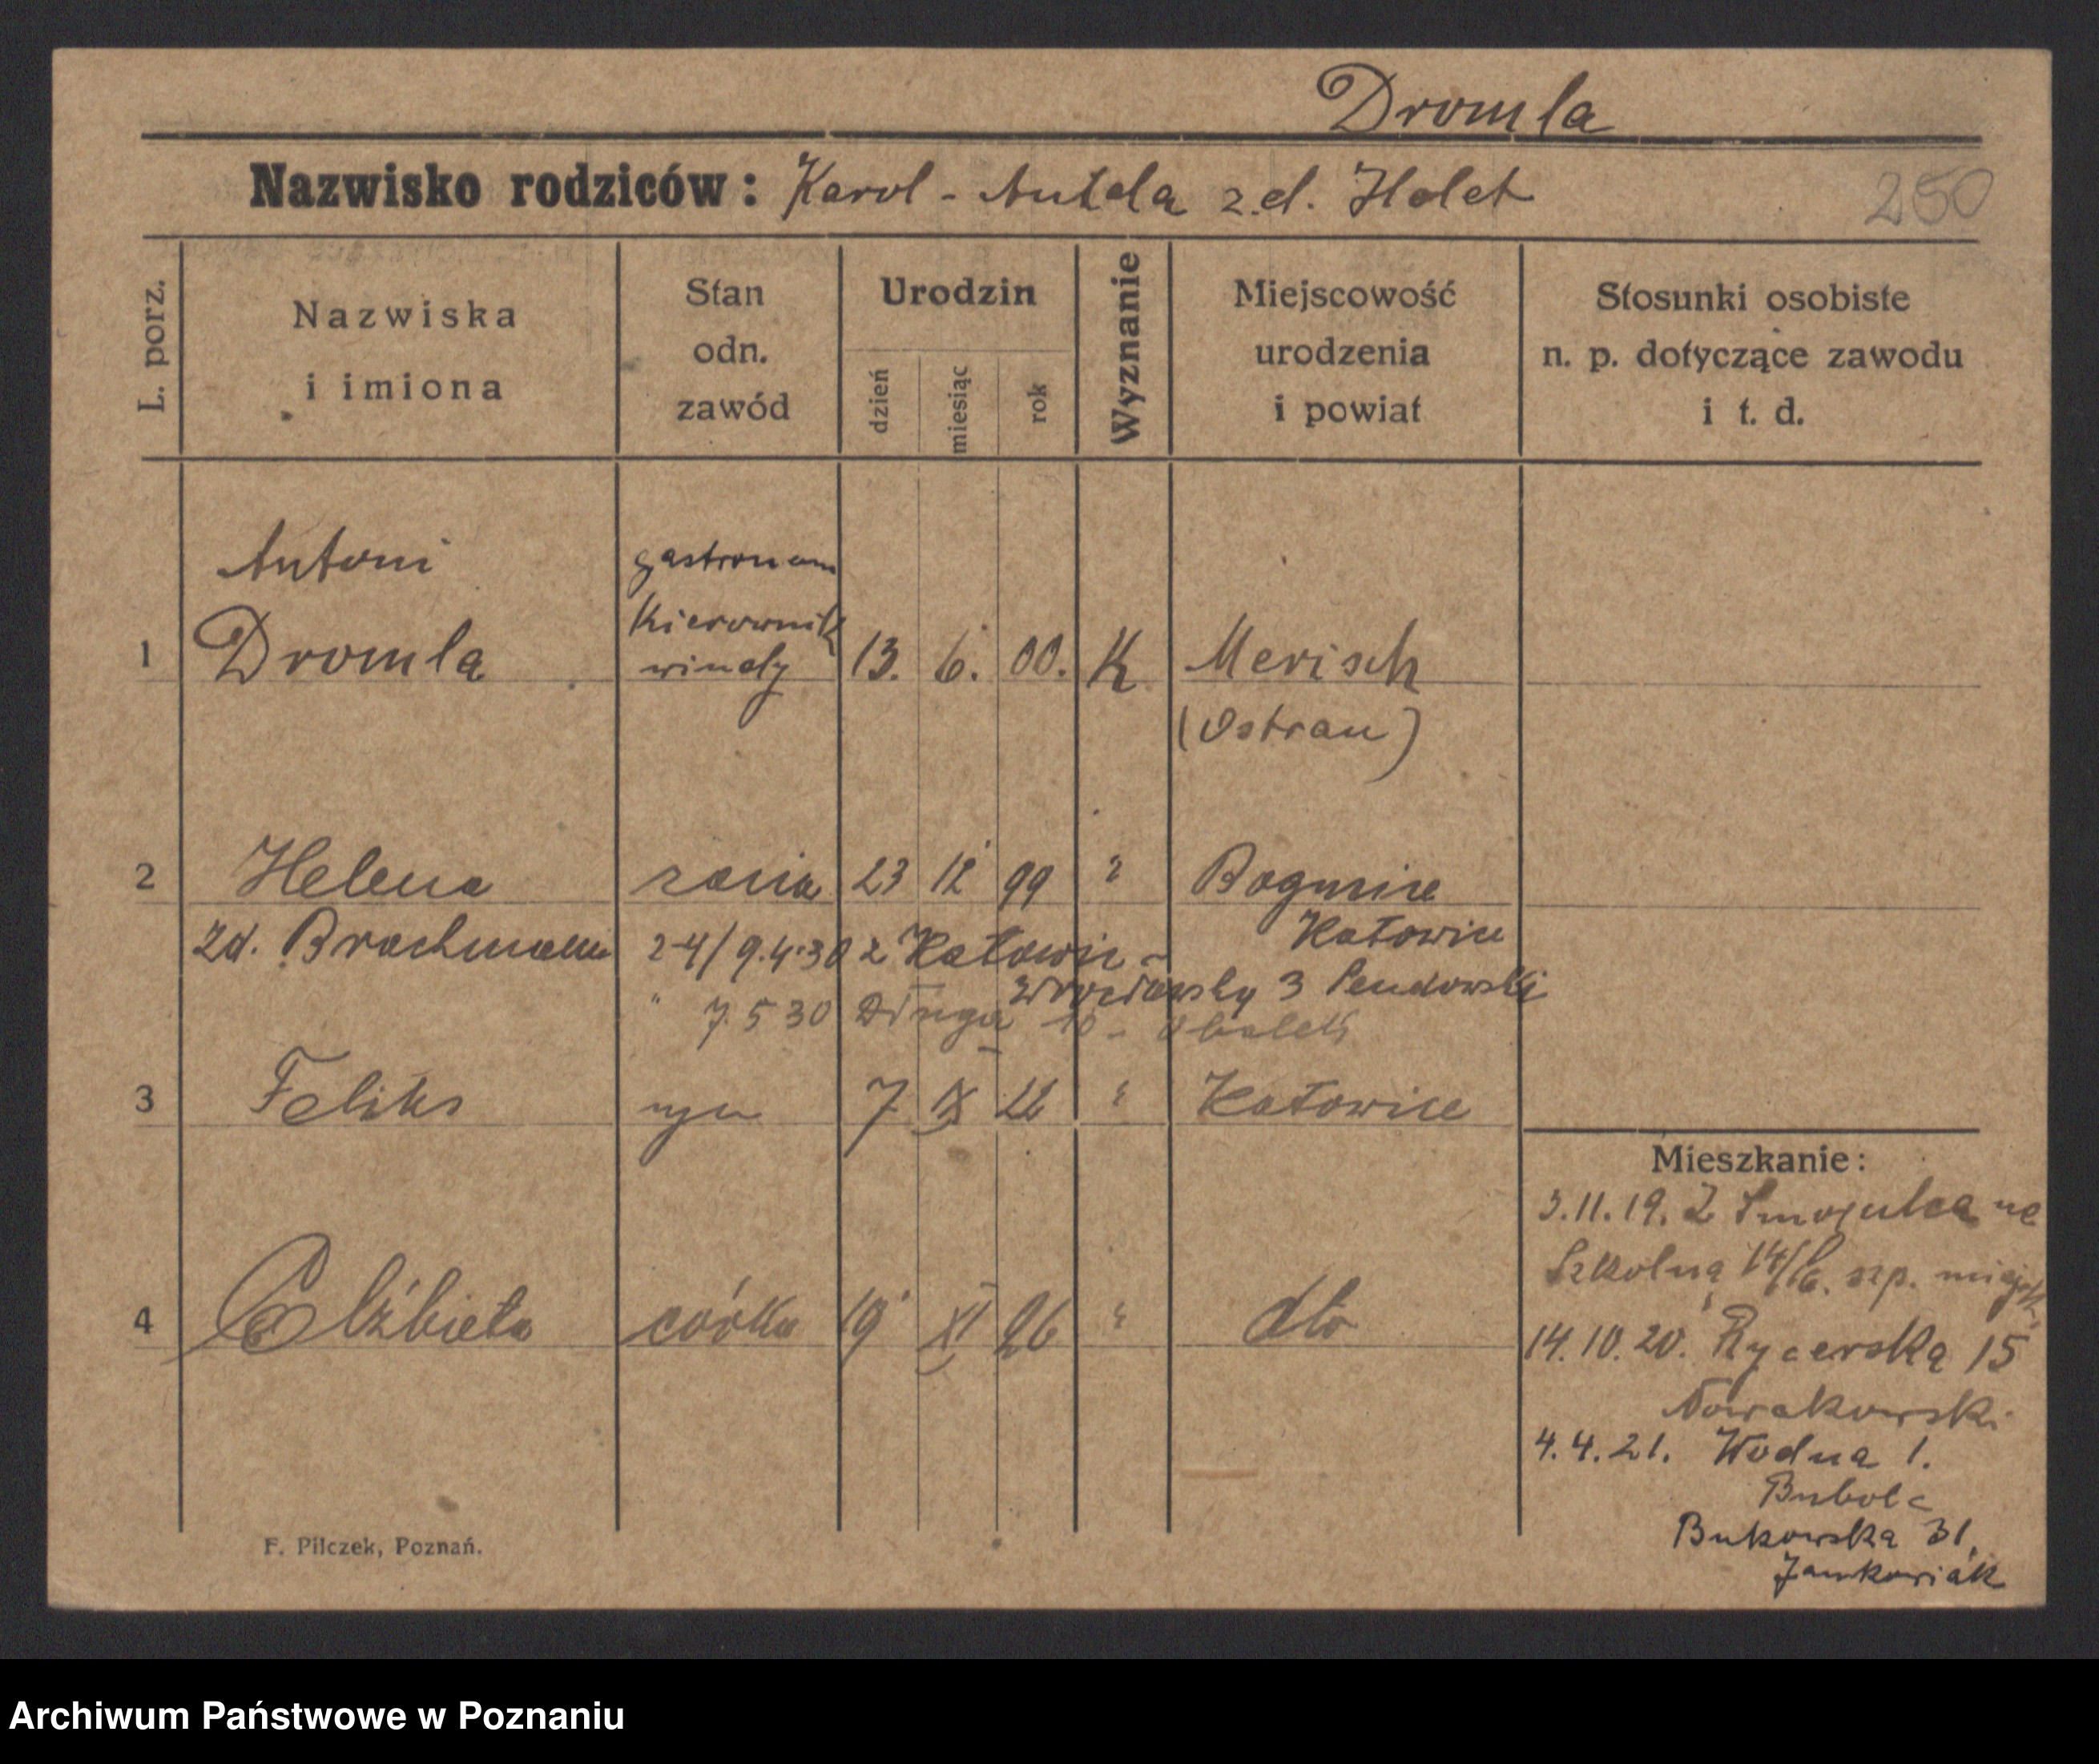 Dromla
Nazwisko rodziców: Karol - Antela z.d. Holet
250
L. porz.
Nazwiska
i imiona
Stan
odn.
zawód
Urodzin
dzień
miesiąc
rok
Wyznanie
Miejscowość
urodzenia
i powiat
Stosunki osobiste
n. p. dotyczące zawodu
i t. d.
Antoni
gastronom
Kierownik
1 Dromla windy 13. 6. 00. K Merisch
(Ostrau)
2 Helena żona 23 12 99 " Bogucice
Katowice
zd. Brachmann 2-4/9.4.30 z Katowic -
Wrocławsky 3 Pendowski
" 7.5 30 Długa 10 -
3 Feliks syn 7 IX 22 " Katowice
4 Elżbieta córka 19 XI 26 " dto
Mieszkanie:
3.11.19. Z Smogulca na
Szkolną 14/16. szp. miejsk.
14.10.20. Rycerska 15
Nowakowski
4.4.21. Wodna 1.
Bubolc
Bukowska 31,
Jankowiak
F. Pilczek, Poznań.
Archiwum Państwowe w Poznaniu